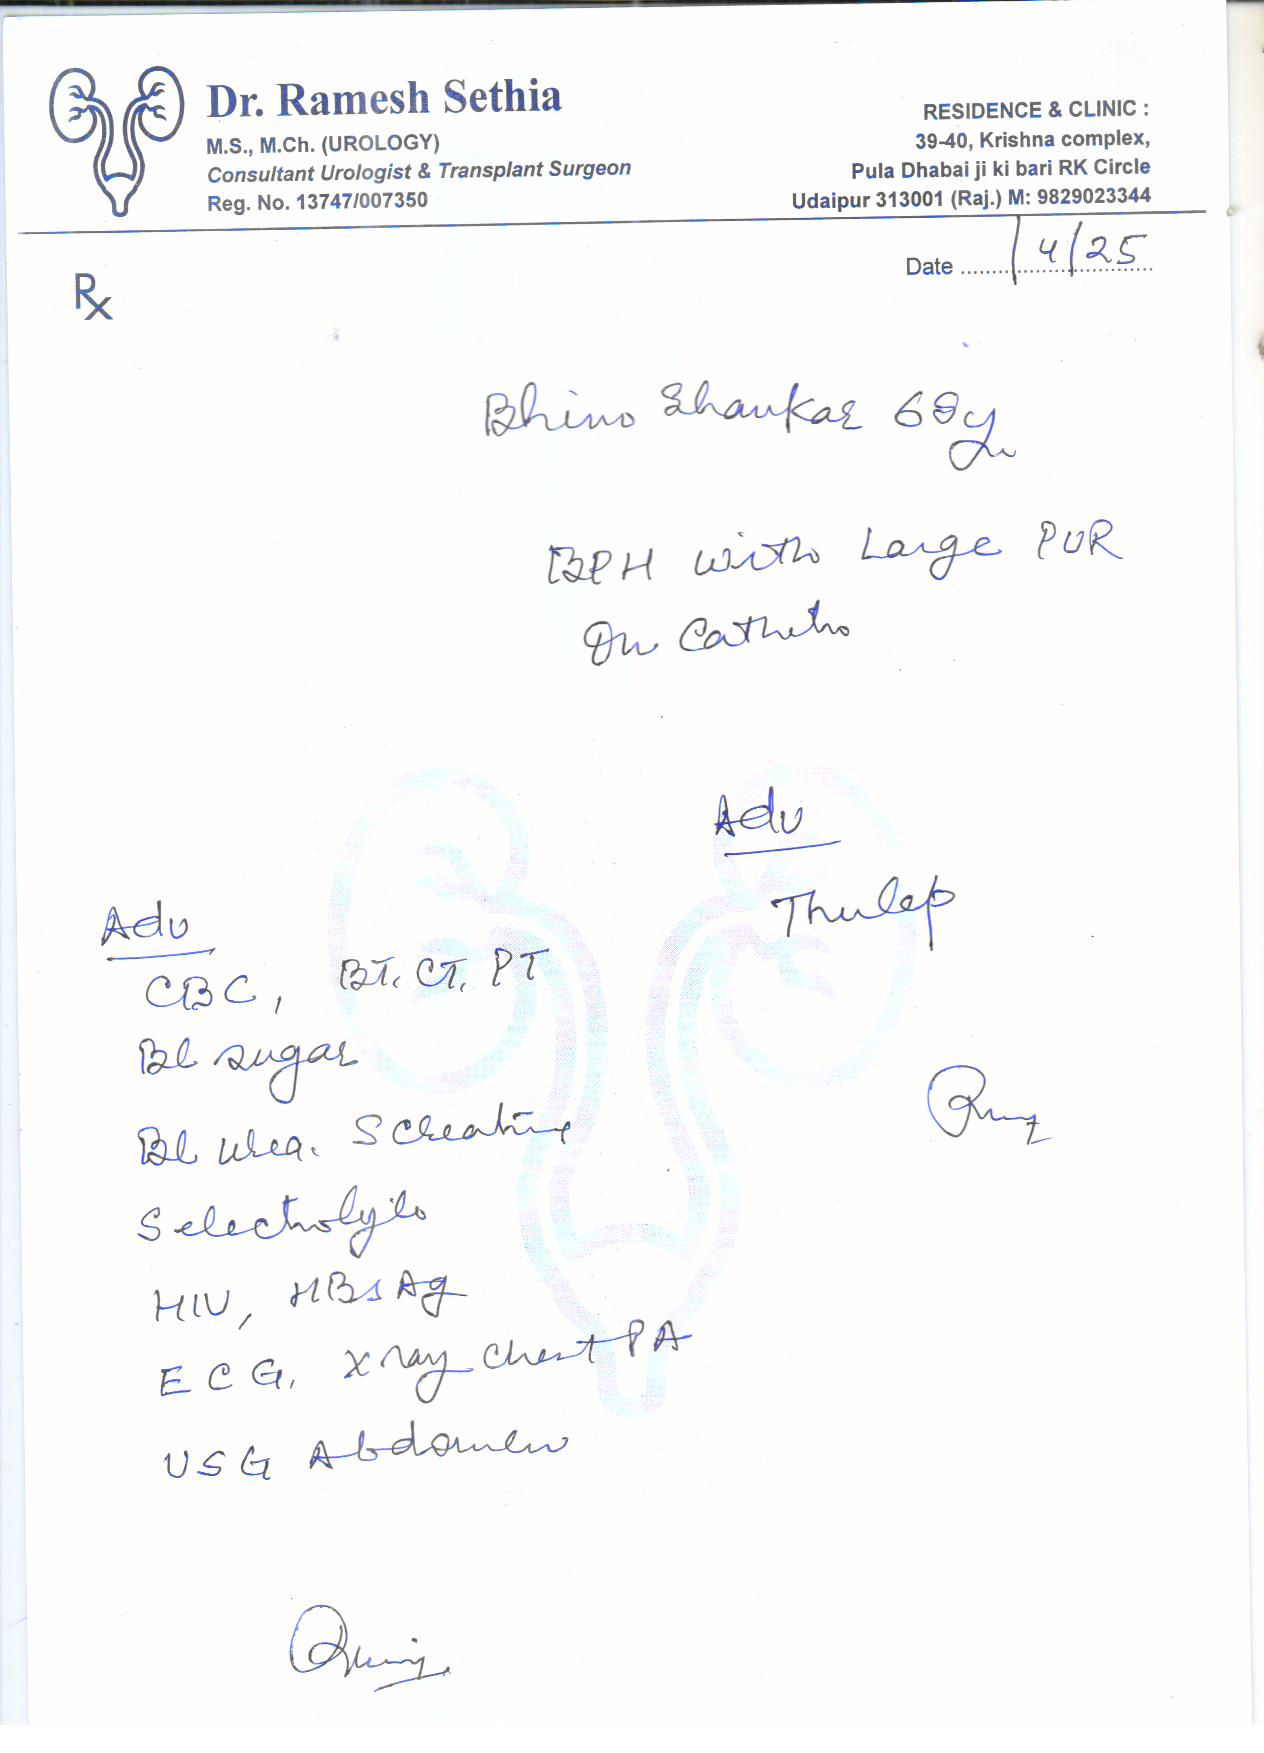 Dr. Ramesh Sethia
M.S., M.Ch. (UROLOGY)
Consultant Urologist & Transplant Surgeon
Reg. No. 13747/007350
RESIDENCE & CLINIC :
39-40, Krishna complex,
Pula Dhabai ji ki bari RK Circle
Udaipur 313001 (Raj.) M: 9829023344
Date /4/25
Rx
Shankar 68y
BPH with Large PVR
On Catheter
Adv
Thulep
Adv
CBC, BT, CT, PT
Bl sugar
Bl urea. S creatinine
S electrolytes
HIV, HBsAg
ECG, X ray chest PA
USG Abdomen